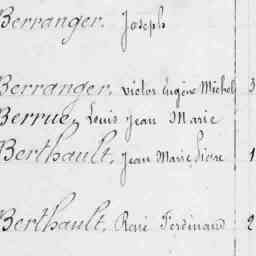 Berranger, Joseph
Berranger, Victor Eugène Michel 3
Berrue, Louis Jean Marie
Berthault, Jean Marie Pierre 1
Berthault, René Ferdinand 2